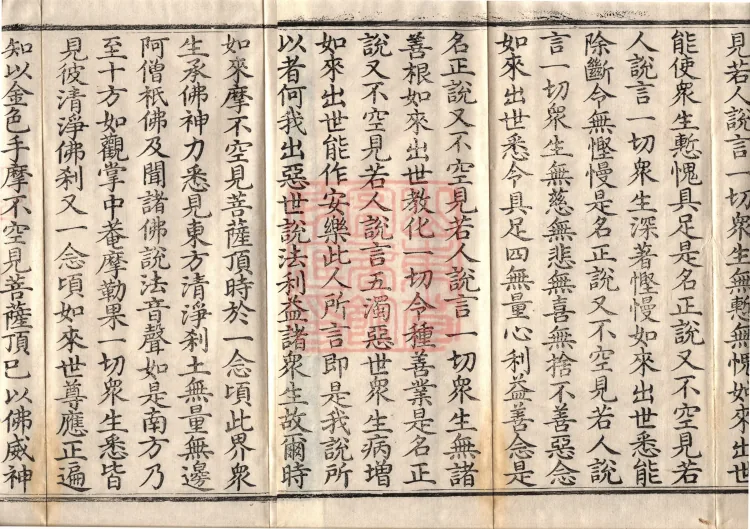 見若人說言一切衆生無慙無愧如來出世
能使衆生慙愧具足是名正說又不空見若
人說言一切衆生深著慳慢如來出世悉能
除斷令無慳慢是名正說又不空見若人說
言一切衆生無慈無悲無喜無捨不善惡念
如來出世悉令具足四無量心利益善念是
名正說又不空見若人說言一切衆生無諸
善根如來出世教化一切令種善業是名正
說又不空見若人說言五濁惡世衆生病增
如來出世能作安樂此人所言即是我說所
以者何我出惡世說法利益諸衆生故爾時
如來摩不空見菩薩頂時於一念頃此界衆
生承佛神力悉見東方清淨刹土無量無邊
阿僧祇佛及聞諸佛說法音聲如是南方乃
至十方如觀掌中菴摩勒果一切衆生悉皆
見彼清淨佛刹又一念頃如來世尊應正遍
知以金色手摩不空見菩薩頂已以佛威神